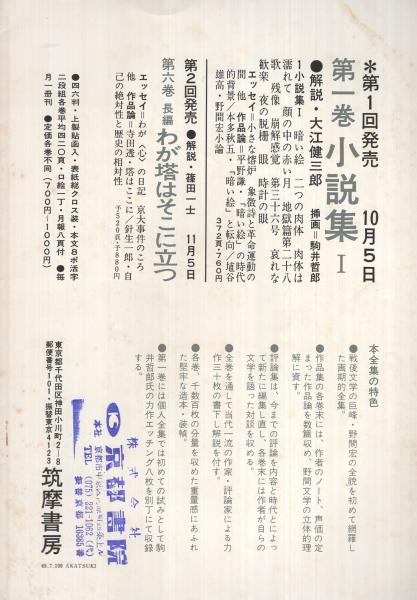 *第1回発売 10月5日
第一巻 小説集 I
●解説・大江健三郎 挿画＝駒井哲郎
1小説集I 暗い絵 二つの肉体 肉体は
濡れて 顔の中の赤い月 地獄篇第二十八
歌 残像 崩解感覚 第三十六号 哀れな
歓楽 夜の脱柵 時計の眼
エッセイ＝小さな熔炉 象徴詩と革命運動の
間 他 作品論＝平野謙・「暗い絵」の時代
的背景／本多秋五・「暗い絵」と転向／埴谷
雄高・野間宏小論
372頁・760円
第2回発売 ●解説・篠田一士 11月5日
第六巻 長編 わが塔はそこに立つ
エッセイ＝わが〈心〉の日記 京大事件のころ
他 作品論＝寺田透・塔はここに／針生一郎・自
己の絶対性と歴史の相対性
予520頁・予880円
●四六判・上製貼函入・表紙総クロス装・本文8ポ活字
二段組各巻平均四二〇頁・口絵一丁・月報八頁付 ●毎
月一冊刊 ●定価各巻不同（700円〜1000円）
本全集の特色
●戦後文学の巨峰・野間宏の全貌を初めて網羅し
た画期的全集。
●作品集の各巻末には、作者のノート、声価の定
まった作品論を数篇収め、野間文学の立体的理
解に資す。
●評論集は、今までの評論を内容と時代とによっ
て新たに編集し直し、各巻末には作者が自らの
文学を語った対談を収める。
●全巻を通して当代一流の作家・評論家による力
作三十枚の書下し解説を付す。
●各巻、千数百枚の分量を収めた重量感にあふれ
た堅牢な造本・装幀。
●第一巻には個人全集では初めての試みとして駒
井哲郎氏の力作エッチング八枚を別丁にて収録
する。
東京都千代田区神田小川町2—8
郵便番号101・振替東京4123
筑摩書房
株式会社
京都書院
本社
TEL (075) 221-1062 (代)
振替京都 10385番
69.7.100 AKATSUKI